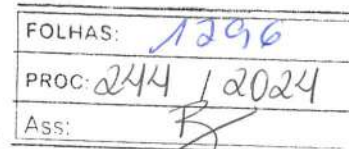 FOLHAS: 1296
PROC: 244 / 2024
Ass: